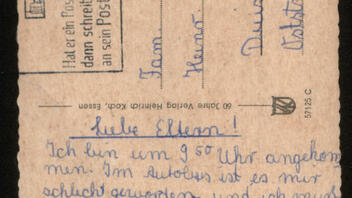 Hat er ein Post
dann schreib
an sein Post
Fam.
Heinr
Duis
60 Jahre Verlag Heinrich Koch, Essen
57125 C
Liebe Eltern!
Ich bin um 9 50 Uhr angekom
men. Im Autobus ist es mir
schlecht geworden und ich muß